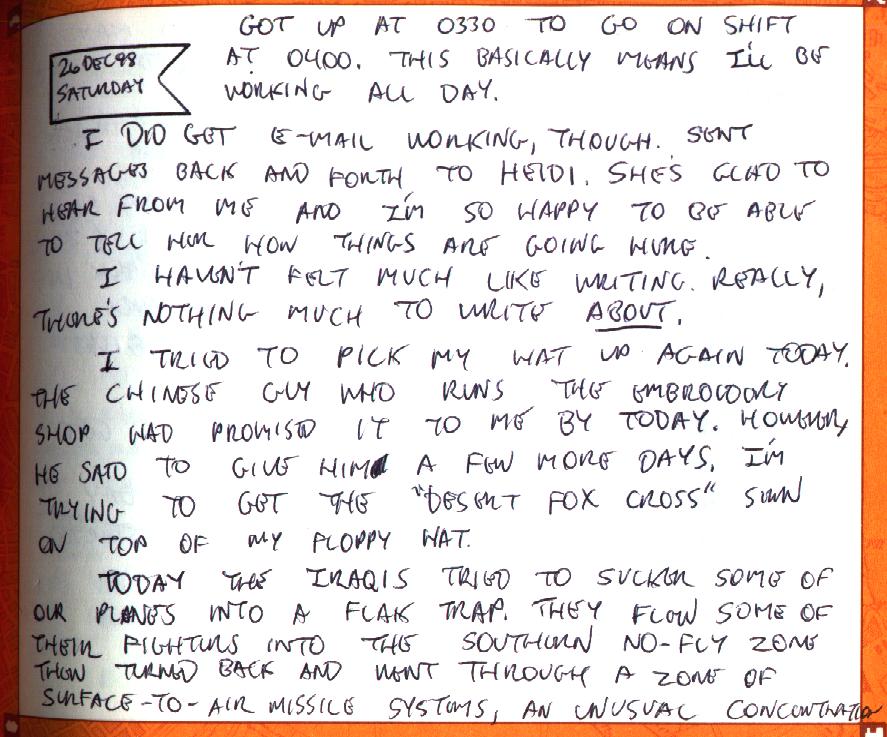 GOT UP AT 0330 TO GO ON SHIFT
26 DEC 98
SATURDAY
AT 0400. THIS BASICALLY MEANS I'LL BE
WORKING ALL DAY.
I DID GET E-MAIL WORKING, THOUGH. SENT
MESSAGES BACK AND FORTH TO HEIDI. SHE'S GLAD TO
HEAR FROM ME AND I'M SO HAPPY TO BE ABLE
TO TELL HER HOW THINGS ARE GOING HERE.
I HAVEN'T FELT MUCH LIKE WRITING. REALLY,
THERE'S NOTHING MUCH TO WRITE ABOUT.
I TRIED TO PICK MY HAT UP AGAIN TODAY.
THE CHINESE GUY WHO RUNS THE EMBROIDERY
SHOP HAD PROMISED IT TO ME BY TODAY. HOWEVER,
HE SAID TO GIVE HIM A FEW MORE DAYS. I'M
TRYING TO GET THE "DESERT FOX CROSS" SEWN
ON TOP OF MY FLOPPY HAT.
TODAY THE IRAQIS TRIED TO SUCKER SOME OF
OUR PLANES INTO A FLAK TRAP. THEY FLEW SOME OF
THEIR FIGHTERS INTO THE SOUTHERN NO-FLY ZONE
THEN TURNED BACK AND WENT THROUGH A ZONE OF
SURFACE-TO-AIR MISSILE SYSTEMS, AN UNUSUAL CONCENTRATION